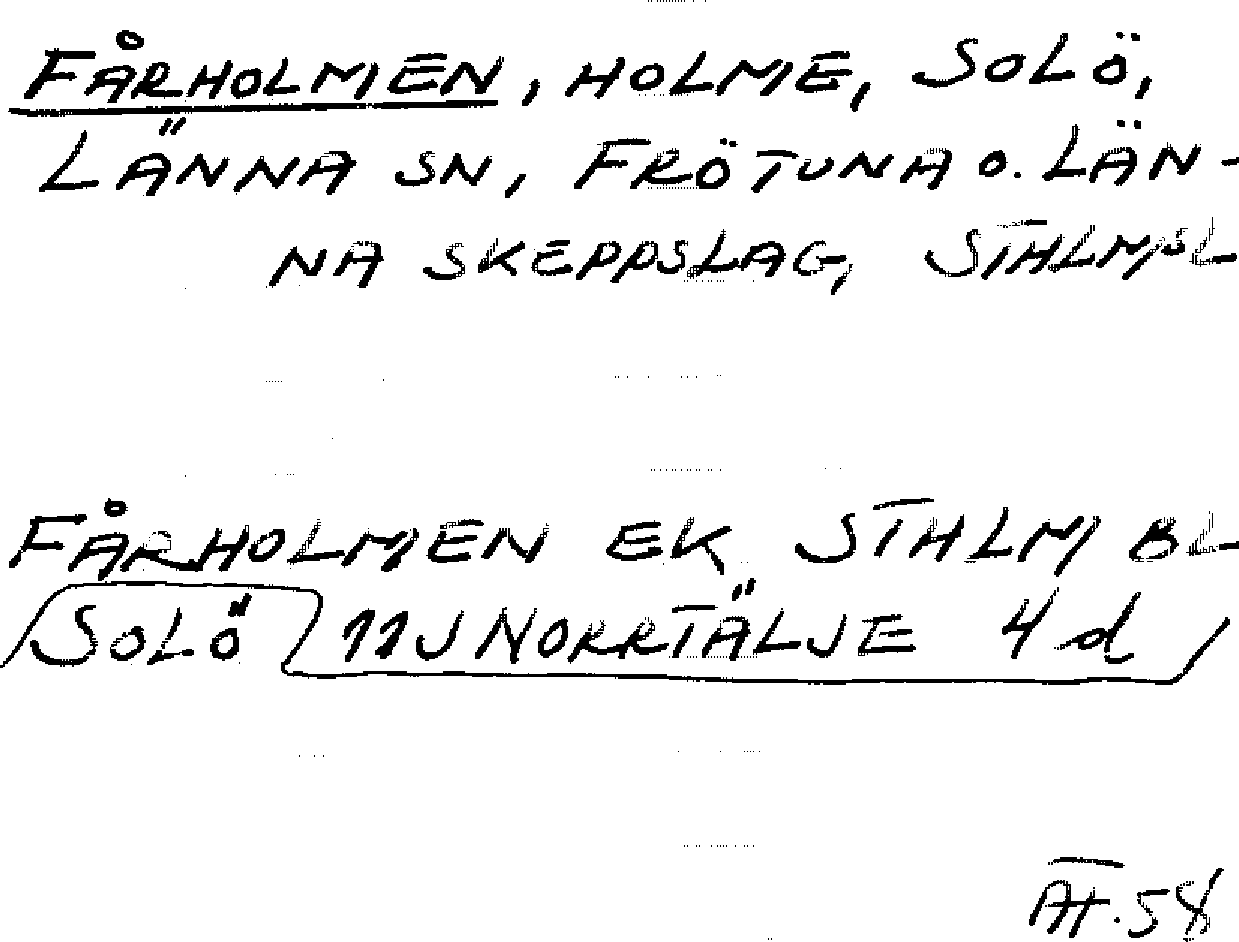 FÅRHOLMEN, HOLME, SOLÖ,
LÄNNA SN, FRÖTUNA O. LÄN-
NA SKEPPSLAG, STHLMSL
FÅRHOLMEN EK STHLM BL
SOLÖ 11J NORRTÄLJE 4d